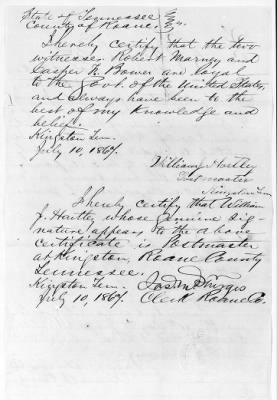 State of Tennessee
County of Roane
I hereby certify that the two
witnesses Robert Marney and
Casper N. Bower are loyal
to the Govt. of the United States,
and always have been to the
best of my knowledge and
belief.
Kingston Ten.
July 10, 1867.
William J Hartley
Post master
Kingston Ten
I hereby certify that William
J. Hartley whose genuine sig-
nature appears to the above
certificate is Postmaster
at Kingston, Roane County
Tennessee.
Kingston Ten.
July 10, 1867.
Clerk Roane Co.